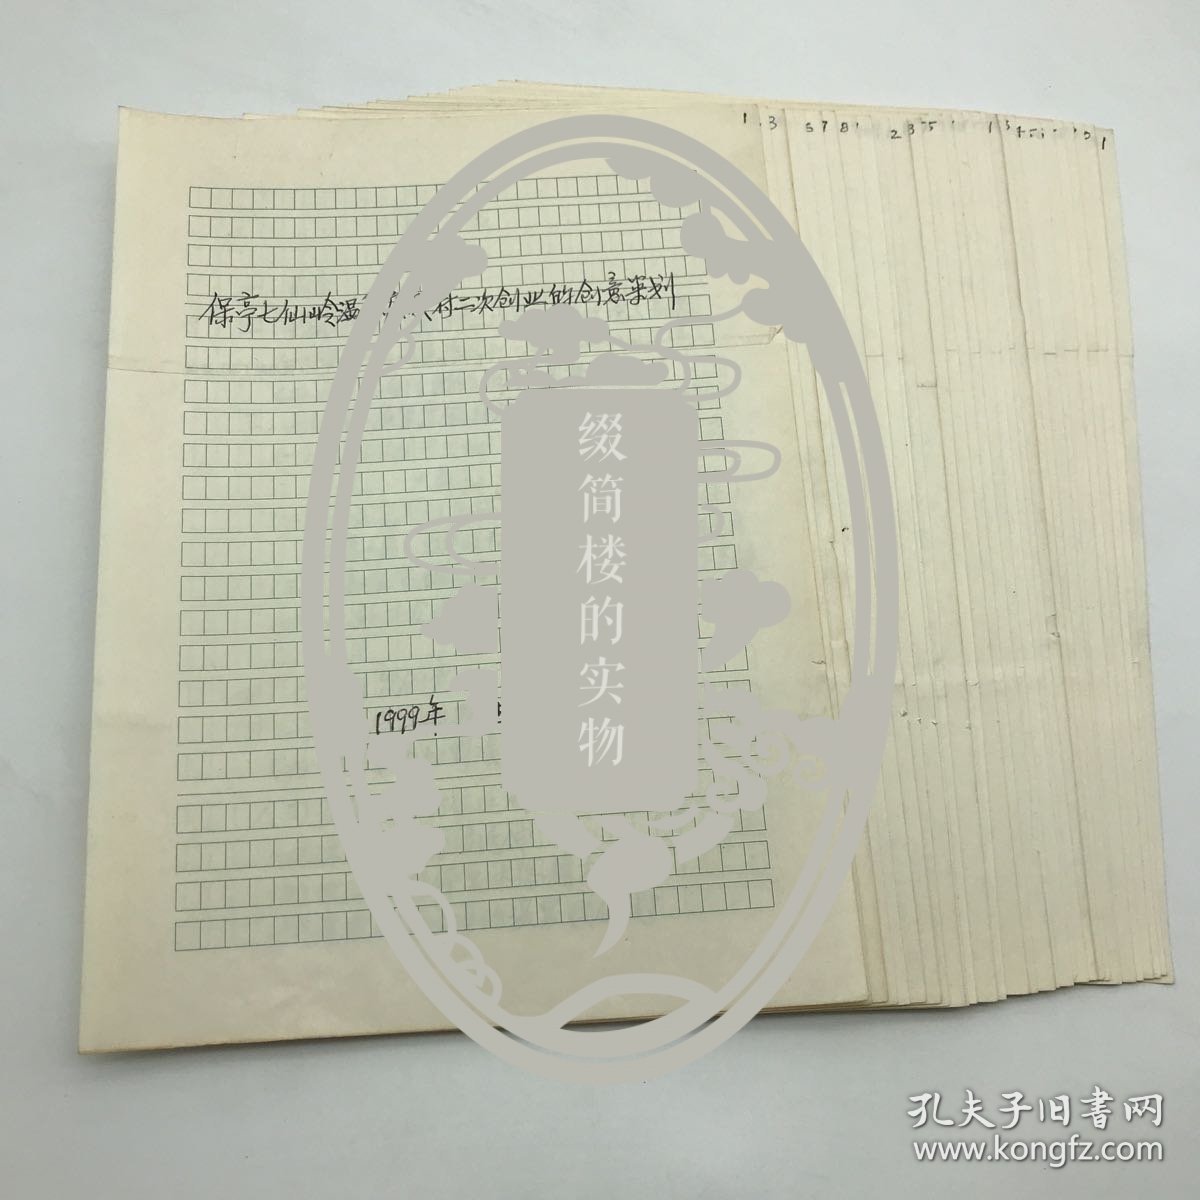 1 3 5 7 8 2 3 5 1 3 4 5 1
保亭七仙岭温村二次创业的创意策划
1999年
缀简楼的实物
孔夫子旧书网
www.kongfz.com